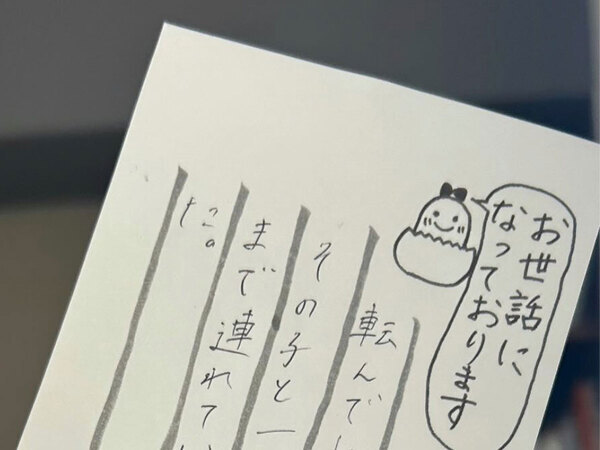 お世話に
なっております
転んで
その子と一
まで連れてい
た。